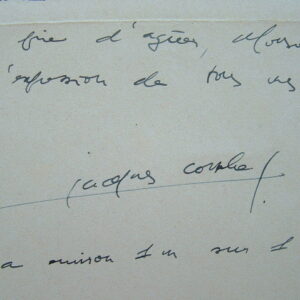 prie d'agréer, Mons
l'expression de tous mes
Jacques
a environ 1 m sur 1